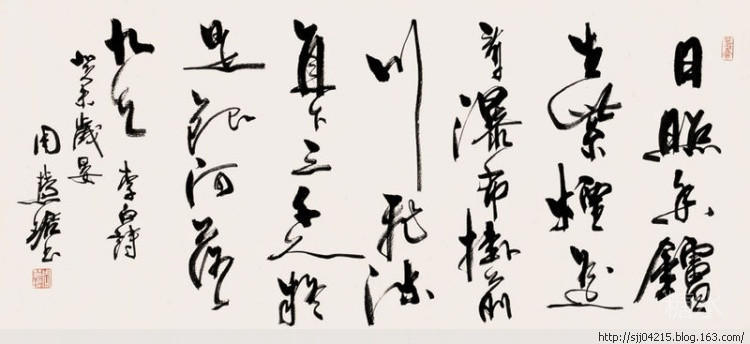 日照香鑪
生紫煙遥
看瀑布掛前
川飛流
直下三千尺疑
是銀河落
九天
李白詩
癸未歲晏
周慧珺书
http://sjj04215.blog.163.com/